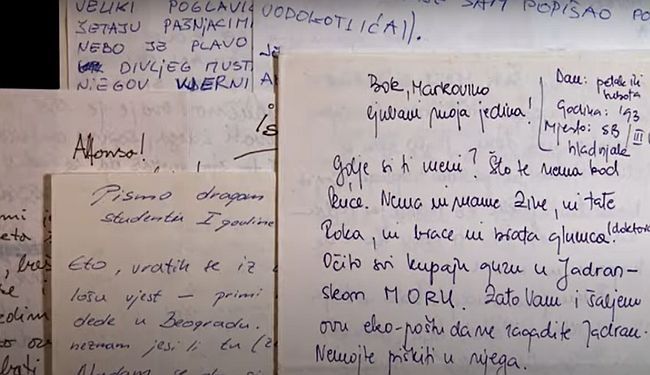 VELIKI POGLAVI
ŠETAJU PAŠNJACIMA
NEBO JE PLAVO
DIVLJEG MUST
NJEGOV VJERNI
SAM POPIŠAO PO
VODOKOTLIĆA)).
Alfonso!
Pismo dragom
studentu I godine
Eto, vratih se iz
lošu vjest – primi
dede u Beogradu.
neznam jesi li tu
Bok, Markovino
ljubavi moja jedina!
Dan: petak ili
subota
Godina: '93
Mjesto: SB
III
hladnjak
Gdje si ti meni? Što te nema kod
kuće. Nema ni mame Žive, ni tate
Roka, ni brace ni brata glumca. (doktora
Očito svi kupaju guzu u Jadran-
skom MORU. Zato Vam i šaljem
ovu eko-poštu da ne zagadite Jadran.
Nemojte piškiti u njega.